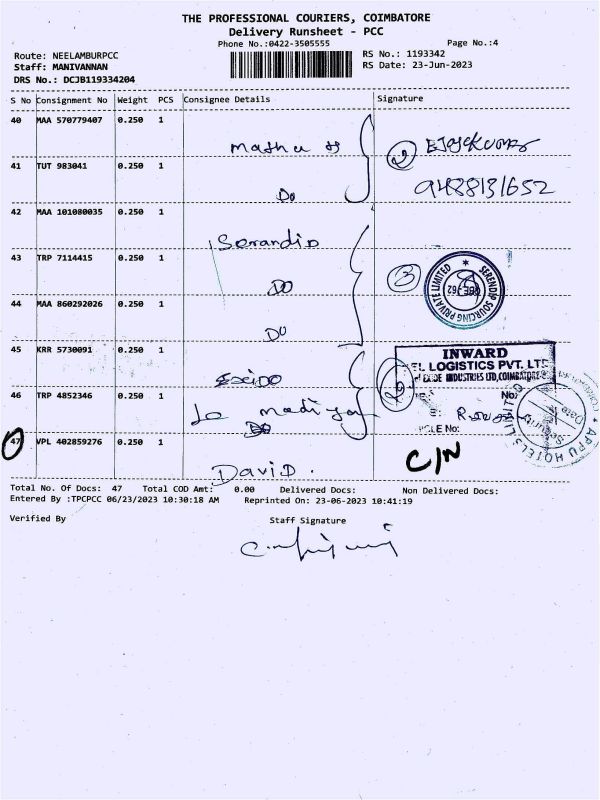 THE PROFESSIONAL COURIERS, COIMBATORE
Delivery Runsheet - PCC
Phone No.:0422-3505555
Page No.:4
Route: NEELAMBURPCC
Staff: MANIVANNAN
DRS No.: DCJB119334204
RS No.: 1193342
RS Date: 23-Jun-2023
S No Consignment No Weight PCS Consignee Details Signature
40 MAA 570779407 0.250 1
9488131652
41 TUT 983041 0.250 1
Do
42 MAA 101080035 0.250 1
43 TRP 7114415 0.250 1
DO
3
SERENDIP SOURCING PRIVATE LIMITED
44 MAA 860292026 0.250 1
DO
45 KRR 5730091 0.250 1
INWARD
EL LOGISTICS PVT. LTD
INDUSTRIES LTD, COIMBATORE
46 TRP 4852346 0.250 1
No:
CLE No:
APPU HOTELS LIMITED
Date
Security
47 VPL 402859276 0.250 1
C/N
David.
Total No. Of Docs: 47 Total COD Amt: 0.00 Delivered Docs: Non Delivered Docs:
Entered By :TPCPCC 06/23/2023 10:30:18 AM Reprinted On: 23-06-2023 10:41:19
Verified By
Staff Signature